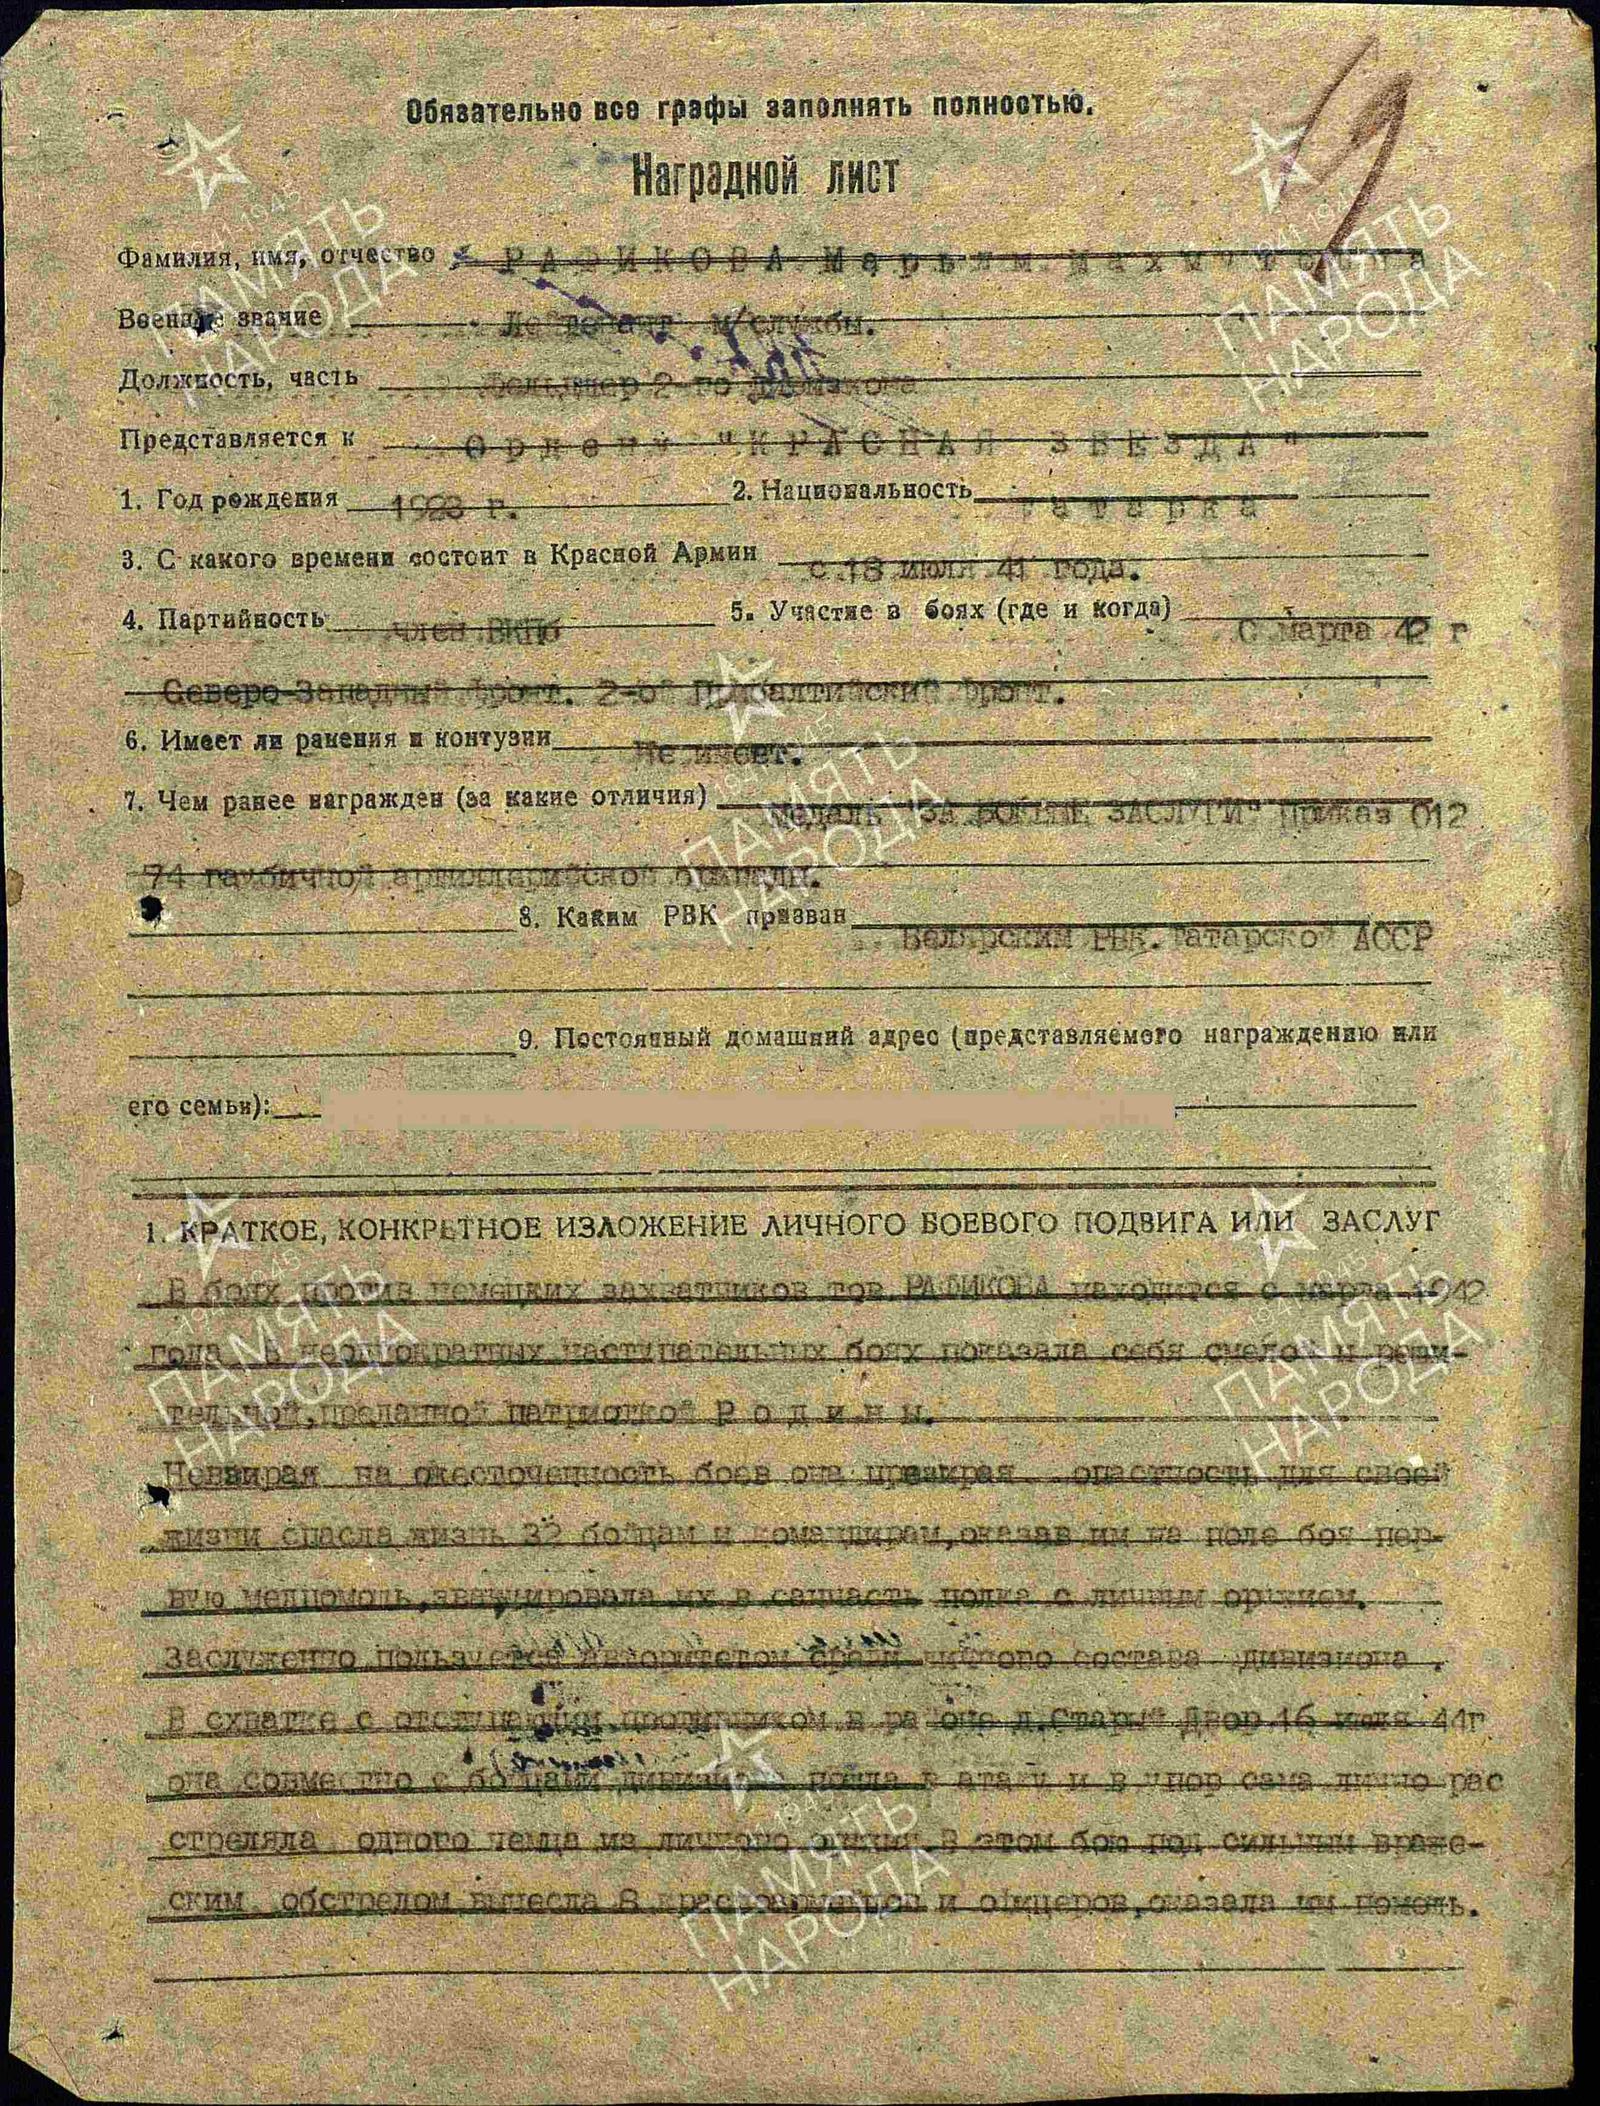 Обязательно все графы заполнять полностью.
Наградной лист
Фамилия, имя, отчество РАФИКОВА Марьям
Военное звание Лейтенант м/службы.
Должность, часть Фельдшер 2-го дивизиона
Представляется к Ордену "КРАСНАЯ ЗВЕЗДА"
1. Год рождения 1923 г. 2. Национальность татарка
3. С какого времени состоит в Красной Армии с 18 июля 41 года.
4. Партийность член ВКПб 5. Участие в боях (где и когда) С марта 42 г
Северо-Западный фронт. 2-ой Прибалтийский фронт.
6. Имеет ли ранения и контузии не имеет.
7. Чем ранее награжден (за какие отличия) медаль "ЗА БОЕВЫЕ ЗАСЛУГИ" приказ 012
74 гаубичной артиллерийской бригады.
8. Каким РВК призван Билярским РВК. Татарской АССР
9. Постоянный домашний адрес (представляемого награждению или
его семьи):
1. КРАТКОЕ, КОНКРЕТНОЕ ИЗЛОЖЕНИЕ ЛИЧНОГО БОЕВОГО ПОДВИГА ИЛИ ЗАСЛУГ
В боях против немецких захватчиков тов. РАФИКОВА находится с марта 1942
года. В неоднократных наступательных боях показала себя смелой и реши-
тельной, преданной патриоткой Родины.
Невзирая на ожесточенность боев она презирая опастность для своей
жизни спасла жизнь 32 бойцам и командирам, оказав им на поле боя пер-
вую медпомощь, эвакуировала их в санчасть полка с личным оружием.
Заслуженно пользуется авторитетом среди личного состава дивизиона.
В схватке с отступающим противником в районе д.Старый Двор 16 июля 44г
она совместно с бойцами дивизиона пошла в атаку и в упор сама лично рас
стреляла одного немца из личного оружия. В этом бою под сильным враже-
ским обстрелом вынесла 8 красноармейцев и офицеров, оказала им помощь.
1941-1945
ПАМЯТЬ
НАРОДА
1941-1945
ПАМЯТЬ
НАРОДА
1941-1945
ПАМЯТЬ
НАРОДА
1941-1945
ПАМЯТЬ
НАРОДА
1941-1945
ПАМЯТЬ
НАРОДА
1941-1945
ПАМЯТЬ
НАРОДА